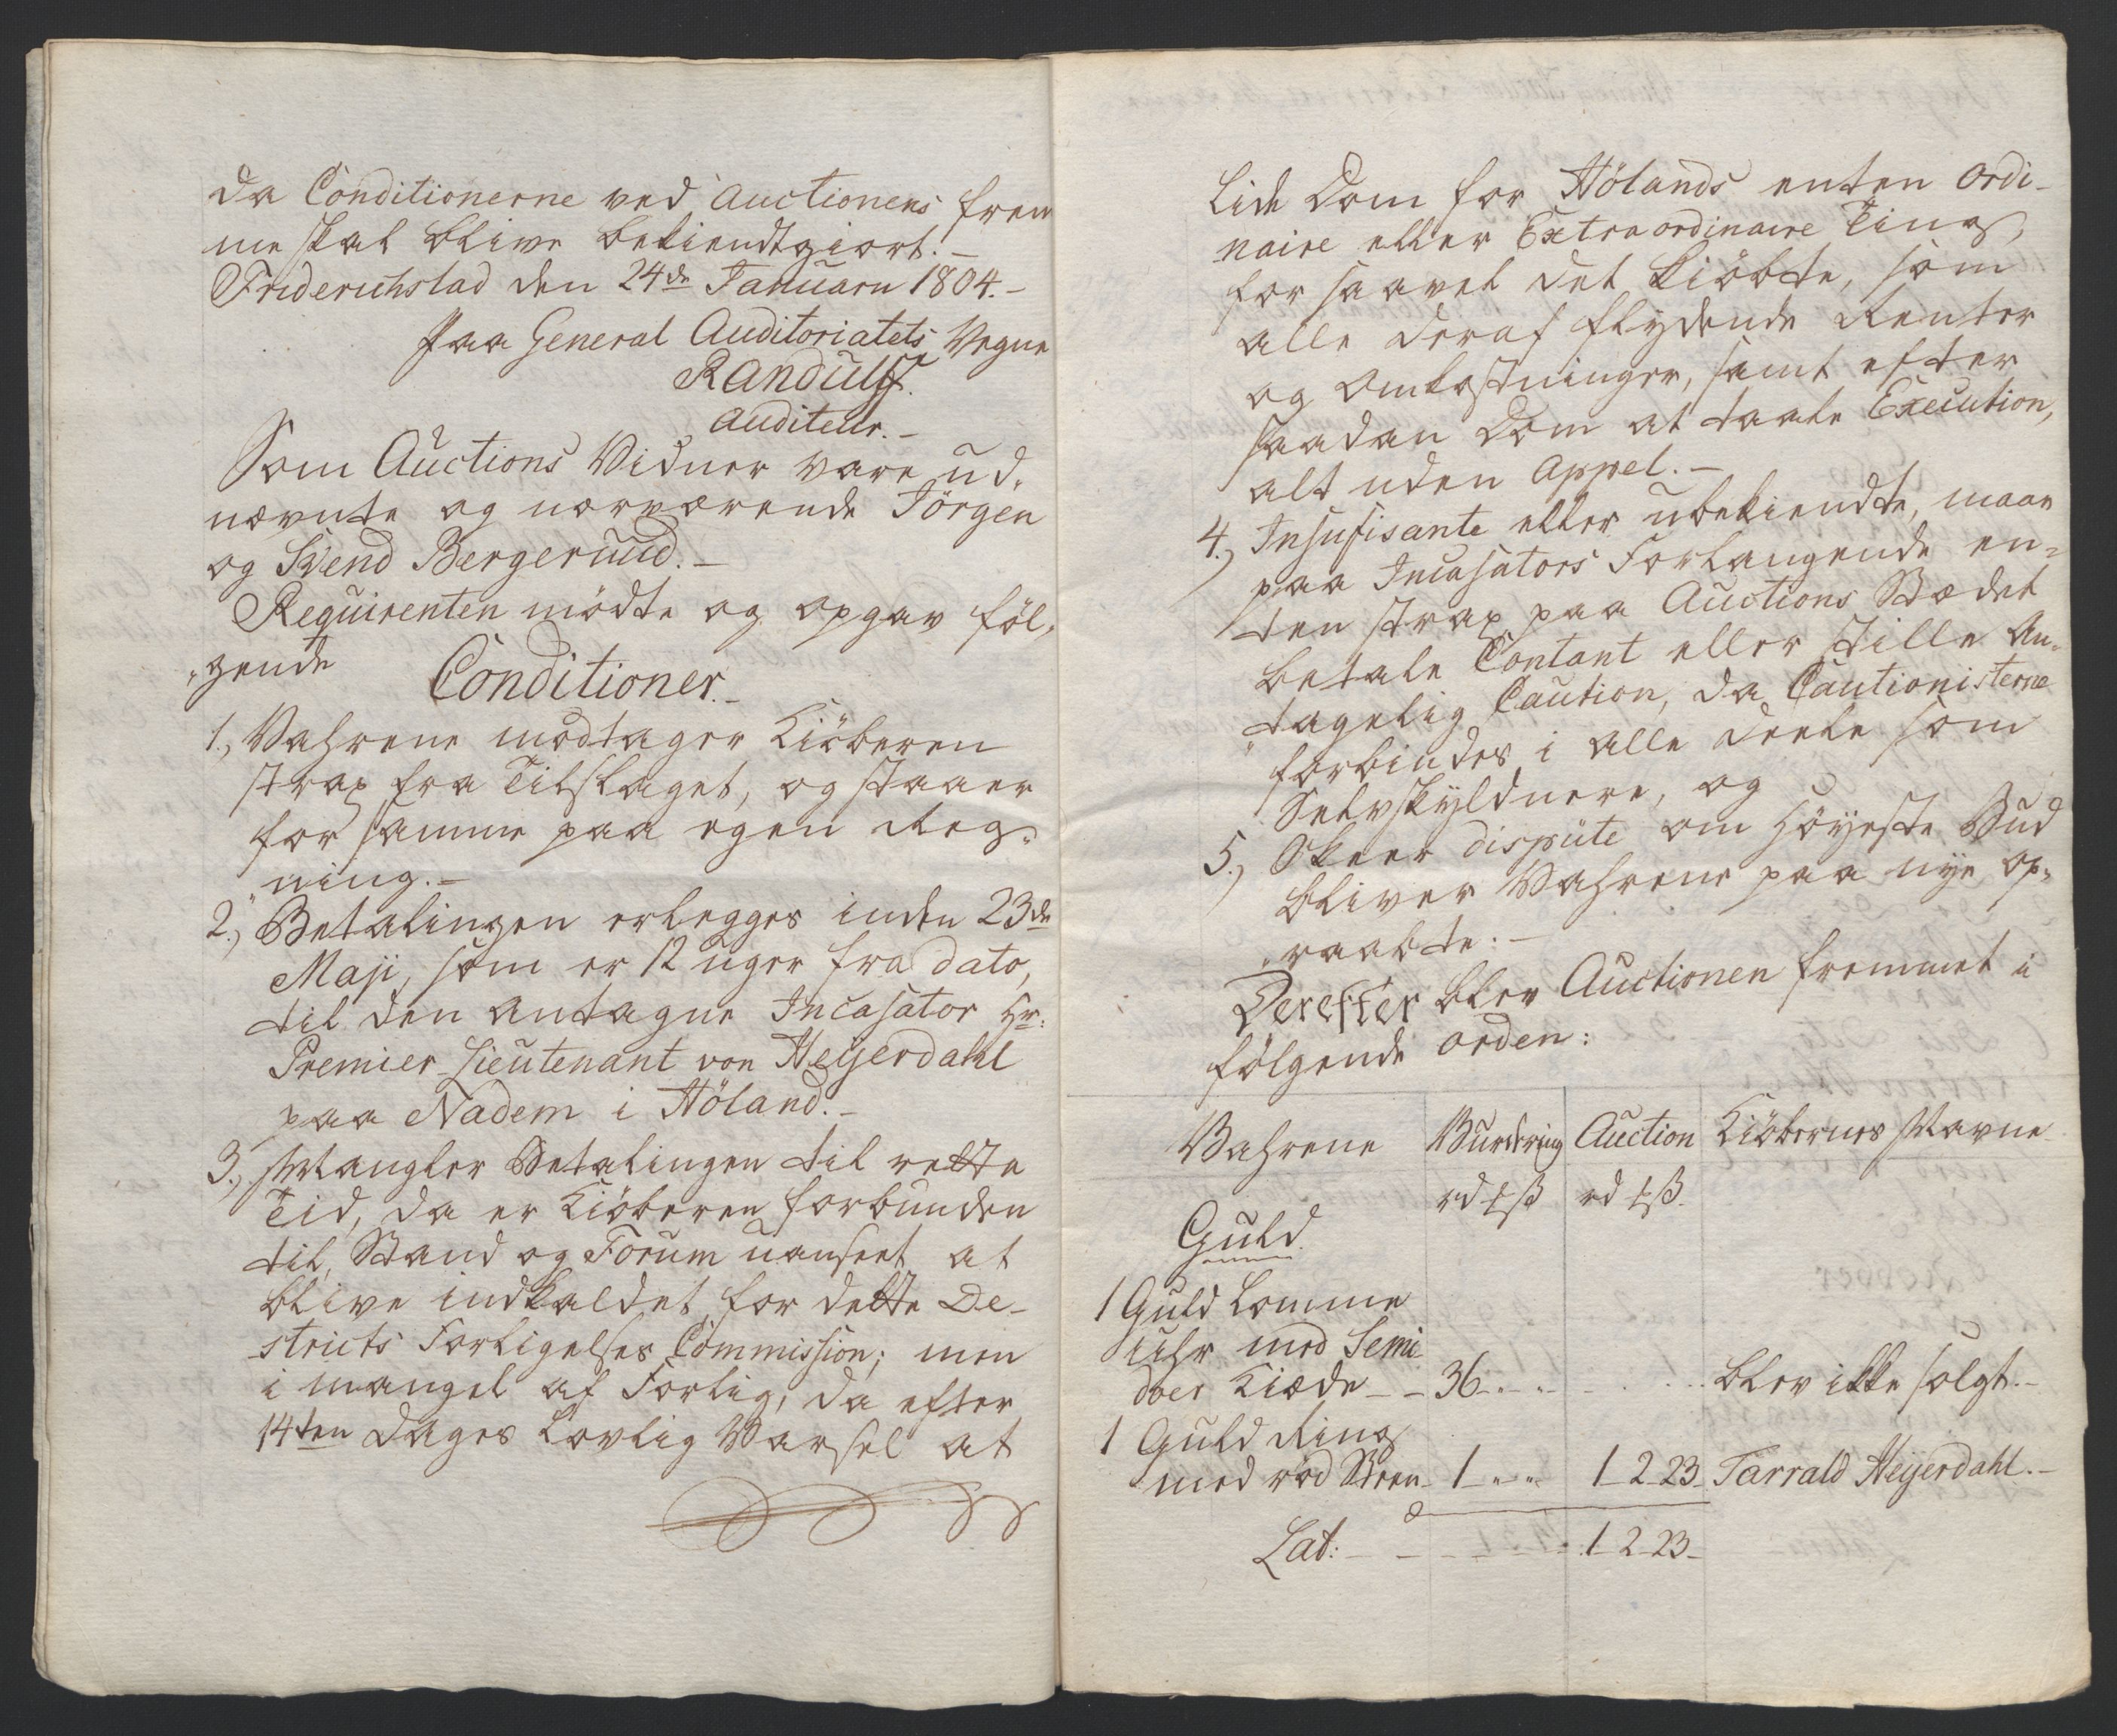 da Conditionerne ved Auctionens frem
me skal blive bekiendtgiort. –
Friderichstad den 24de Januarii 1804. –
Paa General Auditoriatets Vegne
Randulff.
Auditeur. –
Som Auctions Vidner vare ud-
nævnte og nærværende Jörgen
og Svend Bergerud. –
Requirenten mödte og opgav föl-
gende
Conditioner. –
1., Vahrene modtager Kiöberen
strax fra Tilslaget, og staaer
for samme paa egen Reg-
ning. –
2., Betalingen erlegges inden 23de
Maji, som er 12 uger fra dato,
til den antagne Incasator Hr:
Premier-Lieutenant von Heyerdahl
paa Nadem i Höland. –
3., Mangler Betalingen til rette
Tid, da er Kiöberen forbunden
til, Stand og Forum uanseet at
blive indkaldet for dette De-
stricts Forligelses Commission; men
i mangel af Forlig, da efter
14ten Dages Lovlig Varsel at
lide Dom for Hölands enten ordi-
naire eller Extraordinaire Ting,
for saavel det Kiöbte, som
alle deraf flydende Renter
og Omkostninger, samt efter
saadan Dom at taale Execution,
alt uden Appel. –
4., Insufisante eller ubekiendte, maae
paa Incasators Forlangende en-
ten strax paa Auctions Stædet
betale Contant eller stille An-
tagelig Caution, da Cautionisterne
forbindes i alle deele som
Selvskyldnere, og
5., Skeer dispüte om Höyeste Bud
bliver Vahrene paa nye op-
raabte. –
Derefter blev Auctionen fremmet i
fölgende Orden:
Vahrene Vurdering Auction Kiöbernes Navne
rd ß rd ß.
Guld.
1 Guld Lomme
Uhr med Semi
doer Kiæde – – 36 – " – " blev ikke solgt. –
1 Guld Ring
med röd Steen – 1 – " – " 1 – 2 – 23 – Tarrald Heyerdahl. –
Lat: – – – – 1 – 2 – 23 –